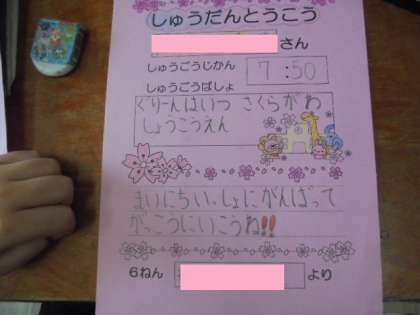 しゅうだんとうこう
さん
しゅうごうじかん 7:50
しゅうごうばしょ
ぐりーんはいつ さくらがわ
しょうこうえん
まいにちいっしょにがんばって
がっこうにいこうね!!
6ねん より